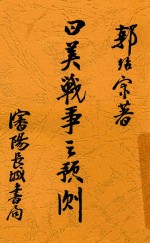 郭紹宗著
日美戰爭之預測
瀋陽長城書局